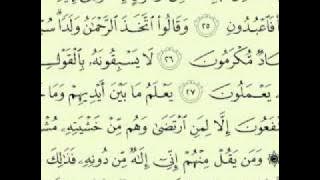 فَٱعْبُدُونِ ٢٥ وَقَالُوا۟ ٱتَّخَذَ ٱلرَّحْمَٰنُ وَلَدًا
ادٌ مُّكْرَمُونَ ٢٦ لَا يَسْبِقُونَهُۥ بِٱلْقَوْلِ
يَعْمَلُونَ ٢٧ يَعْلَمُ مَا بَيْنَ أَيْدِيهِمْ وَمَا
فَعُونَ إِلَّا لِمَنِ ٱرْتَضَىٰ وَهُم مِّنْ خَشْيَتِهِۦ مُشْ
وَمَن يَقُلْ مِنْهُمْ إِنِّىٓ إِلَٰهٌ مِّن دُونِهِۦ فَذَٰلِكَ